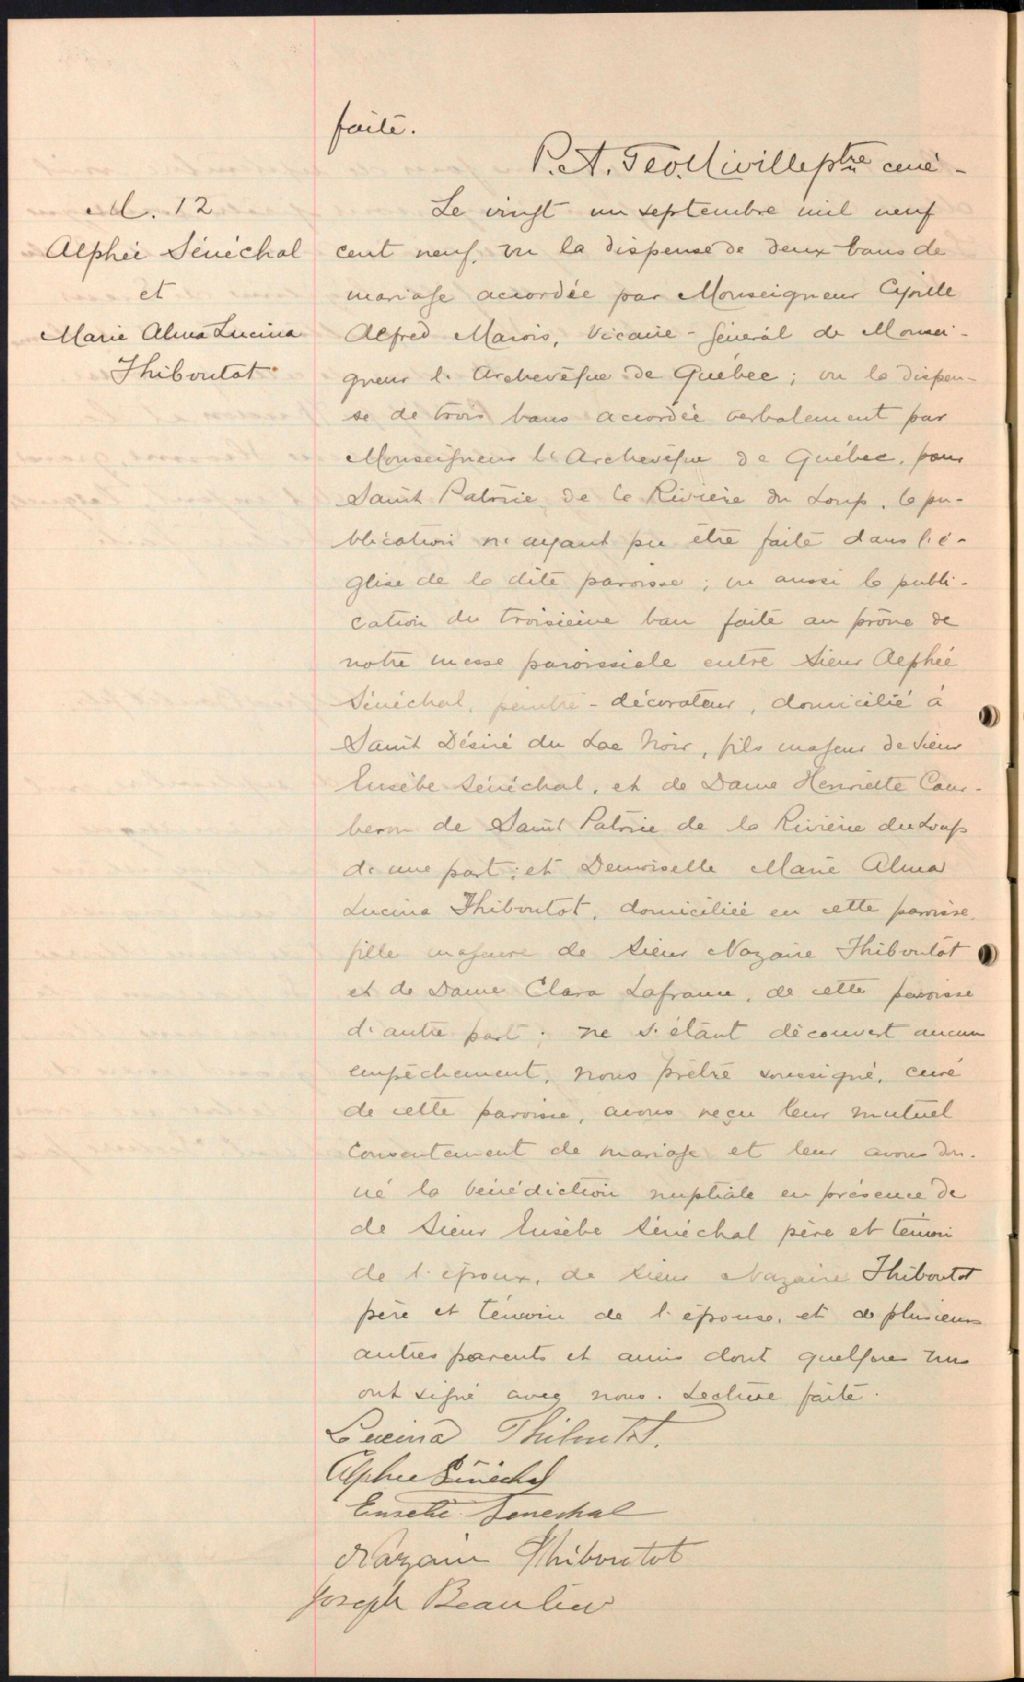 faite.
P. A. Geo. Miville ptre curé -
M. 12
Alphée Sénéchal
et
Marie Alma Lucina
Thiboutot
Le vingt un septembre mil neuf
cent neuf, vu la dispense de deux bans de
mariage accordée par Monseigneur Cyrille
Alfred Marois, Vicaire-général de Monsei-
gneur l'Archevêque de Québec; vu la dispen-
se de trois bans accordée verbalement par
Monseigneur l'Archevêque de Québec, pour
Saint Patrice de la Rivière du Loup, la pu-
blication n'ayant pu être faite dans l'é-
glise de la dite paroisse; vu aussi la publi-
cation du troisième ban faite au prône de
notre messe paroissiale entre Sieur Alphée
Sénéchal, peintre-décorateur, domicilié à
Saint Désiré du Lac Noir, fils majeur de Sieur
Eusèbe Sénéchal, et de Dame Henriette Cour-
beron de Saint Patrice de la Rivière du Loup
d'une part; et Demoiselle Marie Alma
Lucina Thiboutot, domiciliée en cette paroisse,
fille majeure de Sieur Nazaire Thiboutot
et de Dame Clara Lafrance, de cette paroisse
d'autre part; ne s'étant découvert aucun
empêchement, nous prêtre soussigné, curé
de cette paroisse, avons reçu leur mutuel
consentement de mariage et leur avons don-
né la bénédiction nuptiale en présence de
de Sieur Eusèbe Sénéchal père et témoin
de l'époux, de Sieur Nazaire Thiboutot
père et témoin de l'épouse, et de plusieurs
autres parents et amis dont quelques uns
ont signé avec nous. Lecture faite.
Lucina Thiboutot.
Alphee Sénéchal
Eusebe Senechal
Nazaire Thiboutot
Joseph Beaulieu